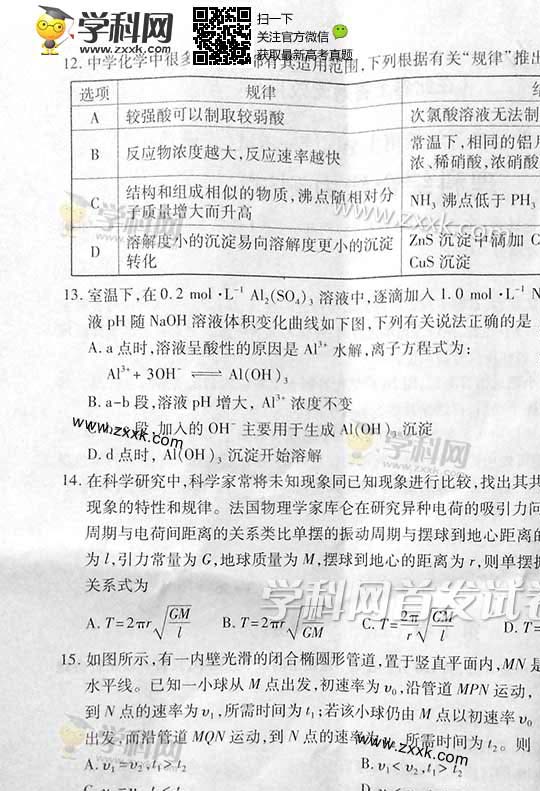 学科网
www.zxxk.com
扫一下
关注官方微信
获取最新高考真题
12. 中学化学中很多 有其适用范围,下列根据有关“规律”推出
选项 规律 结
A 较强酸可以制取较弱酸 次氯酸溶液无法制
B 反应物浓度越大,反应速率越快 常温下,相同的铝片
浓、稀硝酸,浓硝酸
C 结构和组成相似的物质,沸点随相对分子质量增大而升高 NH₃ 沸点低于 PH₃
D 溶解度小的沉淀易向溶解度更小的沉淀转化 ZnS 沉淀中滴加 C
CuS 沉淀
13. 室温下,在 0.2 mol·L⁻¹ Al₂(SO₄)₃ 溶液中,逐滴加入 1.0 mol·L⁻¹ N
液 pH 随 NaOH 溶液体积变化曲线如下图,下列有关说法正确的是
A. a 点时,溶液呈酸性的原因是 Al³⁺ 水解,离子方程式为:
Al³⁺ + 3OH⁻ ⇌ Al(OH)₃
B. a-b 段,溶液 pH 增大, Al³⁺ 浓度不变
C. b-c 段,加入的 OH⁻ 主要用于生成 Al(OH)₃ 沉淀
D. d 点时, Al(OH)₃ 沉淀开始溶解
14. 在科学研究中,科学家常将未知现象同已知现象进行比较,找出其共
现象的特性和规律。法国物理学家库仑在研究异种电荷的吸引力问
周期与电荷间距离的关系类比单摆的振动周期与摆球到地心距离的
为 l,引力常量为 G,地球质量为 M,摆球到地心的距离为 r,则单摆振
关系式为
学科网首发试卷
A. T=2πr√(GM/l) B. T=2πr√(l/GM) C. T=2π/r √(GM/l) D. T=
15. 如图所示,有一内壁光滑的闭合椭圆形管道,置于竖直平面内,MN 是
水平线。已知一小球从 M 点出发,初速率为 v₀,沿管道 MPN 运动,
到 N 点的速率为 v₁,所需时间为 t₁;若该小球仍由 M 点以初速率 v₀
出发,而沿管道 MQN 运动,到 N 点的速率为 v₂,所需时间为 t₂。则
A. v₁=v₂,t₁>t₂ B. v₁<v₂,t₁>t₂